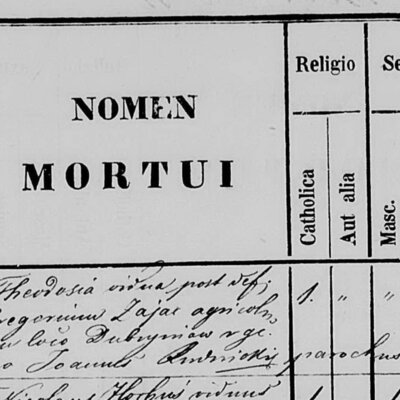 NOMEN
MORTUI
Religio
Se
Catholica
Aut alia
Masc.
Theodosia vidua post def.
Gregorium Zając agricol
loco Dubryniów
1. " "
Joannes Rudnicki parochus
Nicolaus viduus